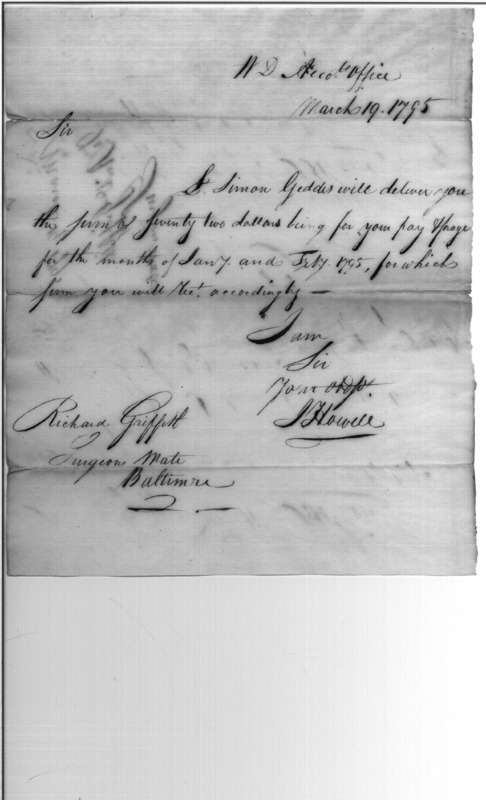 W D Accots Office
March 19. 1795
Sir
Lt. Simon Geddis will deliver you
the sum of seventy two dollars being for your pay & forage
for the months of Jany. and Feby. 1795, for which
sum you will Rect. accordingly —
I am
Sir
Your
J Howell
Richard Griffith
Surgeons Mate
Baltimore